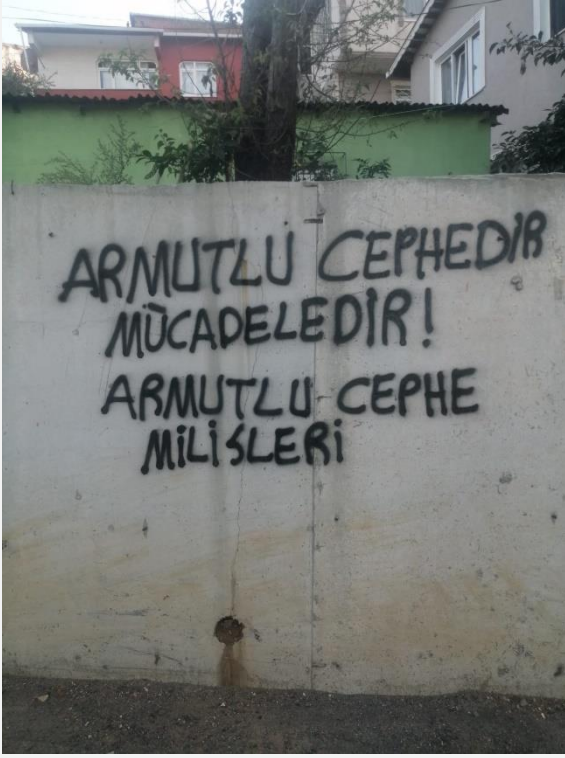 ARMUTLU CEPHEDİR
MÜCADELEDİR!
ARMUTLU CEPHE
MİLİSLERİ